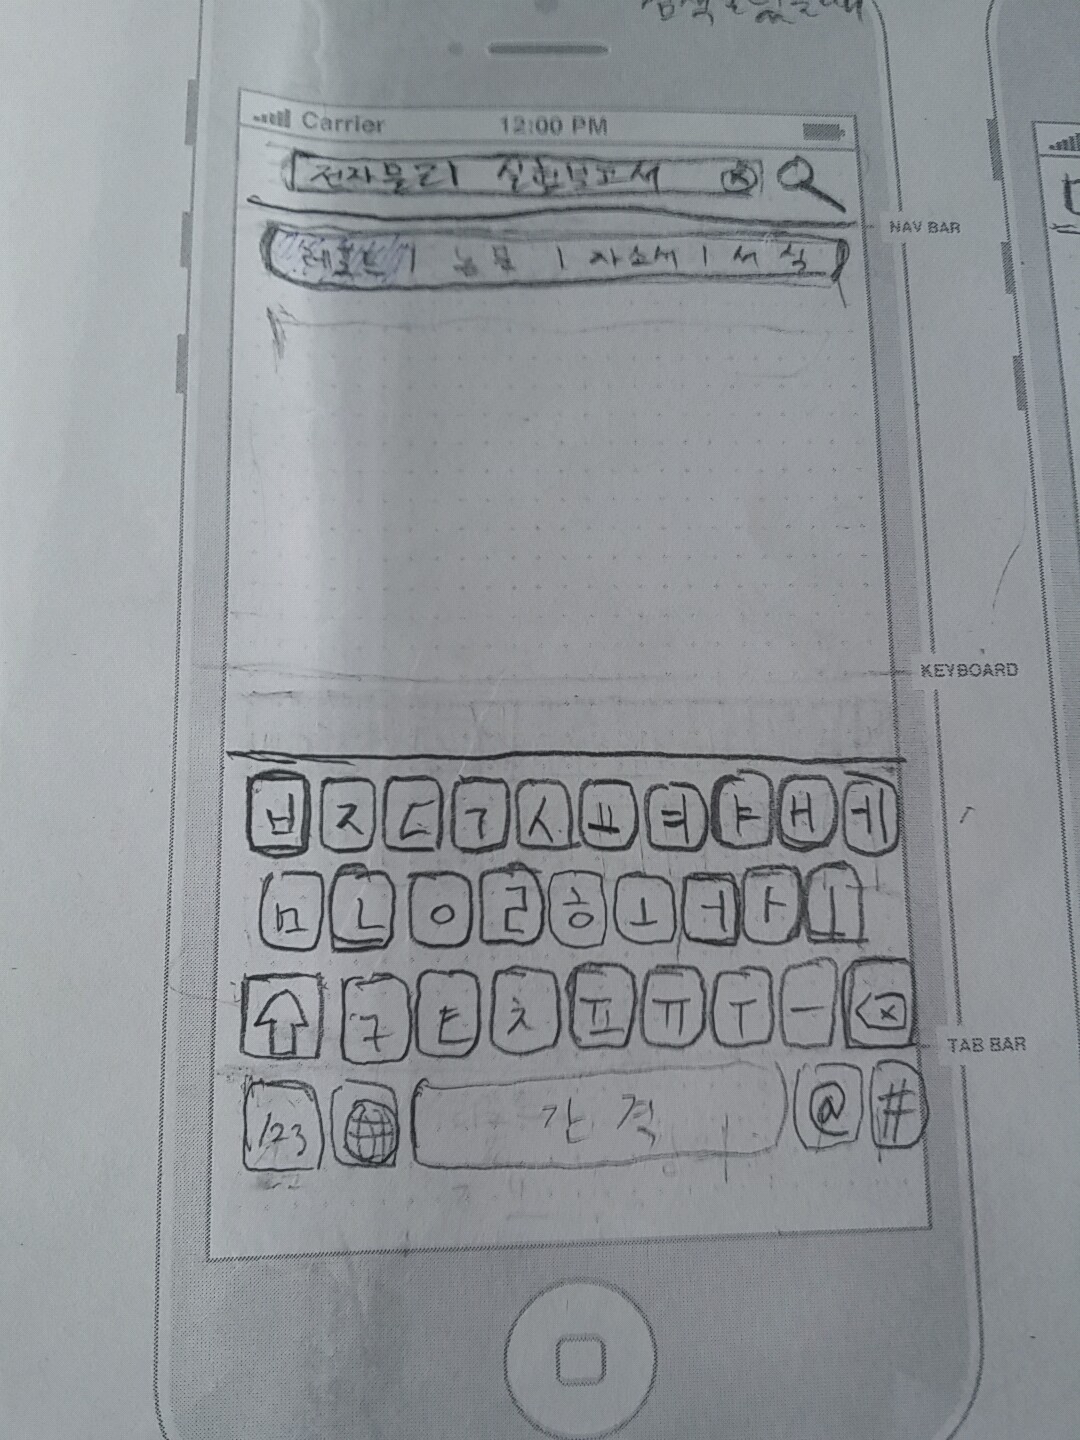 검색 했을때
Carrier 12:00 PM
전자물리 실험보고서
NAV BAR
레포트 | 논문 | 자소서 | 서식
KEYBOARD
ㅂ ㅈ ㄷ ㄱ ㅅ ㅛ ㅕ ㅑ ㅐ ㅔ
ㅁ ㄴ ㅇ ㄹ ㅎ ㅗ ㅓ ㅏ ㅣ
ㅋ ㅌ ㅊ ㅍ ㅠ ㅜ ㅡ
TAB BAR
123 간격 @ #